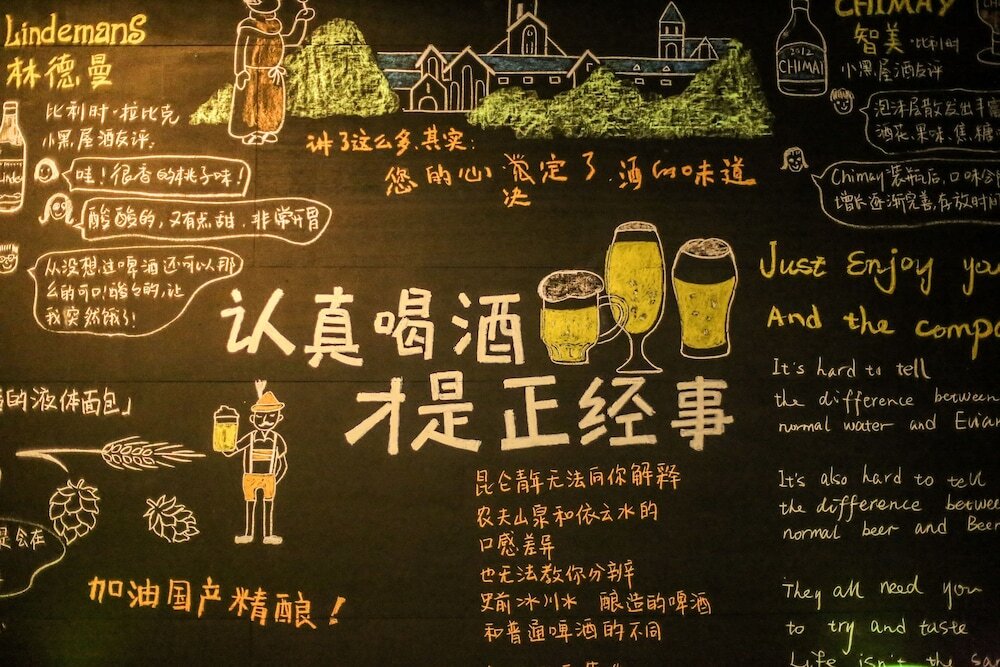 Lindemans
林德曼
比利时·拉比克
小黑屋酒友评.
哇!很香的桃子味!
酸酸的,又有点甜.非常开胃
从没想过啤酒还可以那
么的可口!酸々的,让
我突然饿了!
讲了这么多,其实:
您的心觉定了.酒的味道
决
CHIMAY
智美·比利时
小黑屋酒友评
2012
CHIMAI
泡沫层散发出丰富
酒花.果味.焦糖
Chimay装瓶后,口味会
增长逐渐完善,存放时间
认真喝酒
才是正经事
Just Enjoy you
And the compa
It's hard to tell
the difference between
normal water and Evian
It's also hard to tell
the difference between
normal beer and Beer
They all need you
to try and taste
Life isn't the sa
的液体面包」
会在
加油国产精酿!
昆仑青年无法向你解释
农夫山泉和依云水的
口感差异
也无法教你分辨
史前冰川水 酿造的啤酒
和普通啤酒的不同